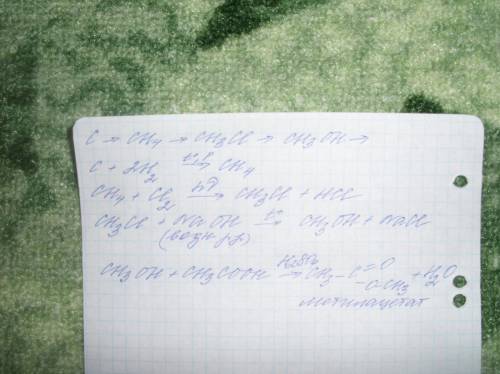 C → CH4 → CH3Cl → CH3OH →
C + 2H2 → CH4
CH4 + Cl2 →hν CH3Cl + HCl
CH3Cl + NaOH →t° CH3OH + NaCl
(водн р-р)
CH3OH + CH3COOH →H2SO4 CH3-C=O-O-CH3 + H2O
метилацетат